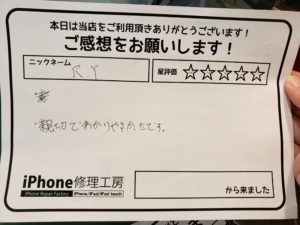 本日は当店をご利用頂きありがとうございます！
ご感想をお願いします！
ニックネーム
R.Y
星評価 ☆☆☆☆☆
親切でわかりやすかったです。
iPhone修理工房
iPhone Repair Factory iPhone/iPad/iPod touch
から来ました